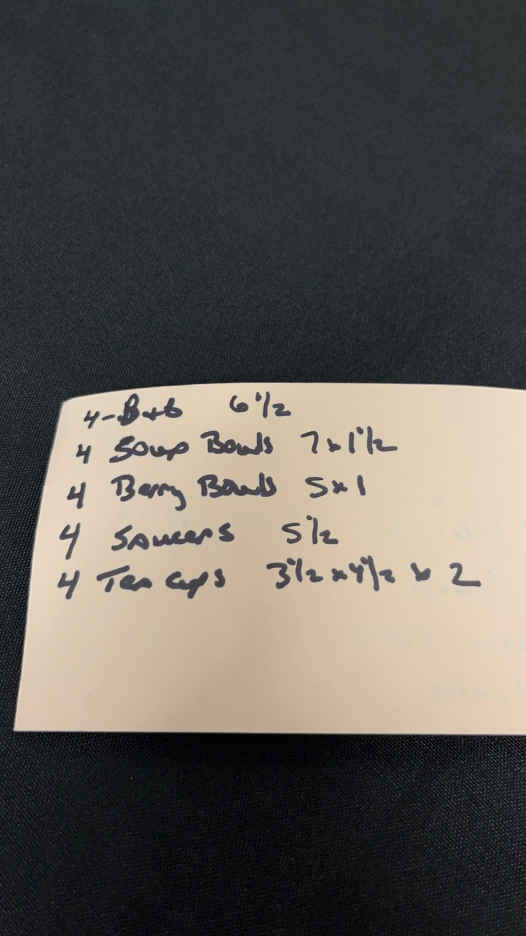 4-B+B 6 1/2
4 Soup Bowls 7x1 1/2
4 Berry Bowls 5x1
4 Saucers 5 1/2
4 Tea Cups 3 1/2 x 4 1/2 x 2